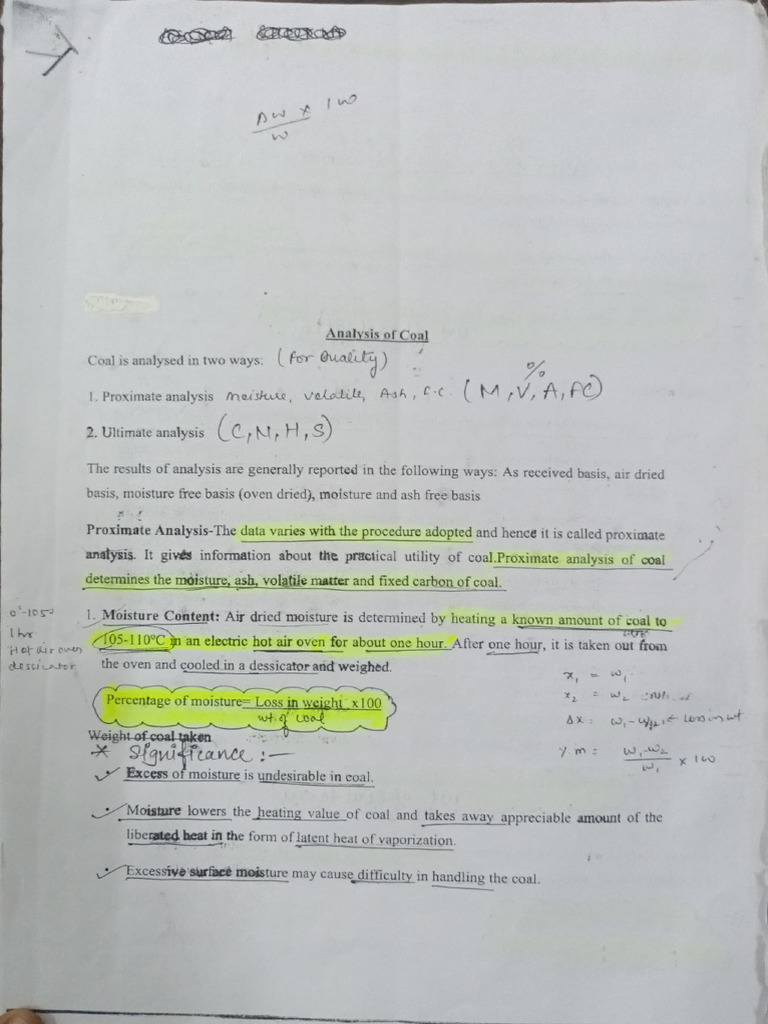 Δw x 100
w
Analysis of Coal
Coal is analysed in two ways: (for Quality)
%
1. Proximate analysis moisture, volatile, Ash, F.C. (M, V, A, FC)
2. Ultimate analysis (C, N, H, S)
The results of analysis are generally reported in the following ways: As received basis, air dried
basis, moisture free basis (oven dried), moisture and ash free basis
Proximate Analysis-The data varies with the procedure adopted and hence it is called proximate
analysis. It gives information about the practical utility of coal.Proximate analysis of coal
determines the moisture, ash, volatile matter and fixed carbon of coal.
1. Moisture Content: Air dried moisture is determined by heating a known amount of coal to
105-110°C in an electric hot air oven for about one hour. After one hour, it is taken out from
the oven and cooled in a dessicator and weighed.
1 hr
Hot air oven
dessicator
Percentage of moisture= Loss in weight x100
wt. of coal
Weight of coal taken
x₁ = w₁
x₂ = w₂
Δx = w₁-w₂ = Loss in wt
% m = w₁-w₂ x 100
w₁
* Significance :-
✓ Excess of moisture is undesirable in coal.
✓ Moisture lowers the heating value of coal and takes away appreciable amount of the
liberated heat in the form of latent heat of vaporization.
✓ Excessive surface moisture may cause difficulty in handling the coal.